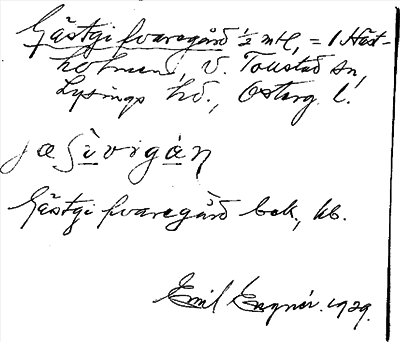 Gästgifvaregård ½ mtl, = 1 Häst-
holmen, V. Tollstad sn,
Lysings hd., Österg. l.
jaʃìvrigán
Gästgifvaregård bek., kb.
Emil Engnér. 1929.